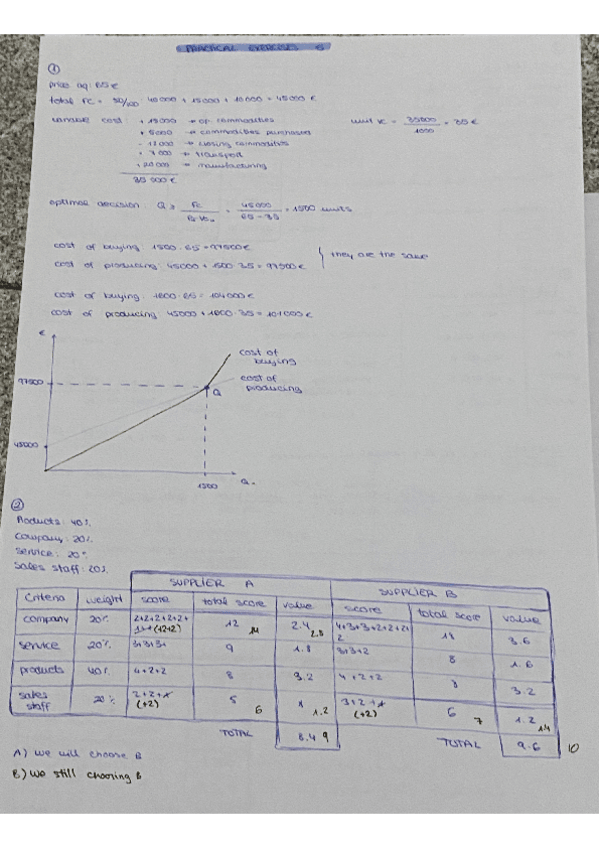 PRACTICAL EXERCISES 6
①
price aq: 65 €
total FC = 50/100 · 40 000 + 15 000 + 10 000 = 45 000 €
variable cost: + 15 000 → op. commodities
+ 5000 → commodities purchased
- 12 000 → closing commodities
+ 7 000 → transport
+ 20 000 → manufacturing
35 000 €
unit VC = 35000 / 1000 = 35 €
optimal decision: Q ≥ Fc / = 45 000 / 65 - 35 = 1500 units
cost of buying: 1500 · 65 = 97500 €
cost of producing: 45000 + 1500 · 35 = 97500 €
they are the same
cost of buying: 1600 · 65 = 104000 €
cost of producing: 45000 + 1600 · 35 = 101000 €
€
cost of buying
97500
cost of producing
Q
45000
1500
Q.
②
Products: 40%
Company: 20%
Service: 20%
Sales staff: 20%
SUPPLIER A SUPPLIER B
Criteria weight score total score value score total score value
company 20% 2+2+2+2+2+ (+2) 12 14 2.4 2.8 4+3+3+2+2+2+2 18 3.6
service 20% 3+3+3+ 9 1.8 3+3+2 8 1.6
products 40% 4+2+2 8 3.2 4+2+2 8 3.2
sales staff 20% 2+2+1 (+2) 5 6 1 1.2 3+2+1 (+2) 6 7 1.2 1.4
TOTAL 8.4 9 TOTAL 9.6 10
A) we will choose B
B) we still choosing B